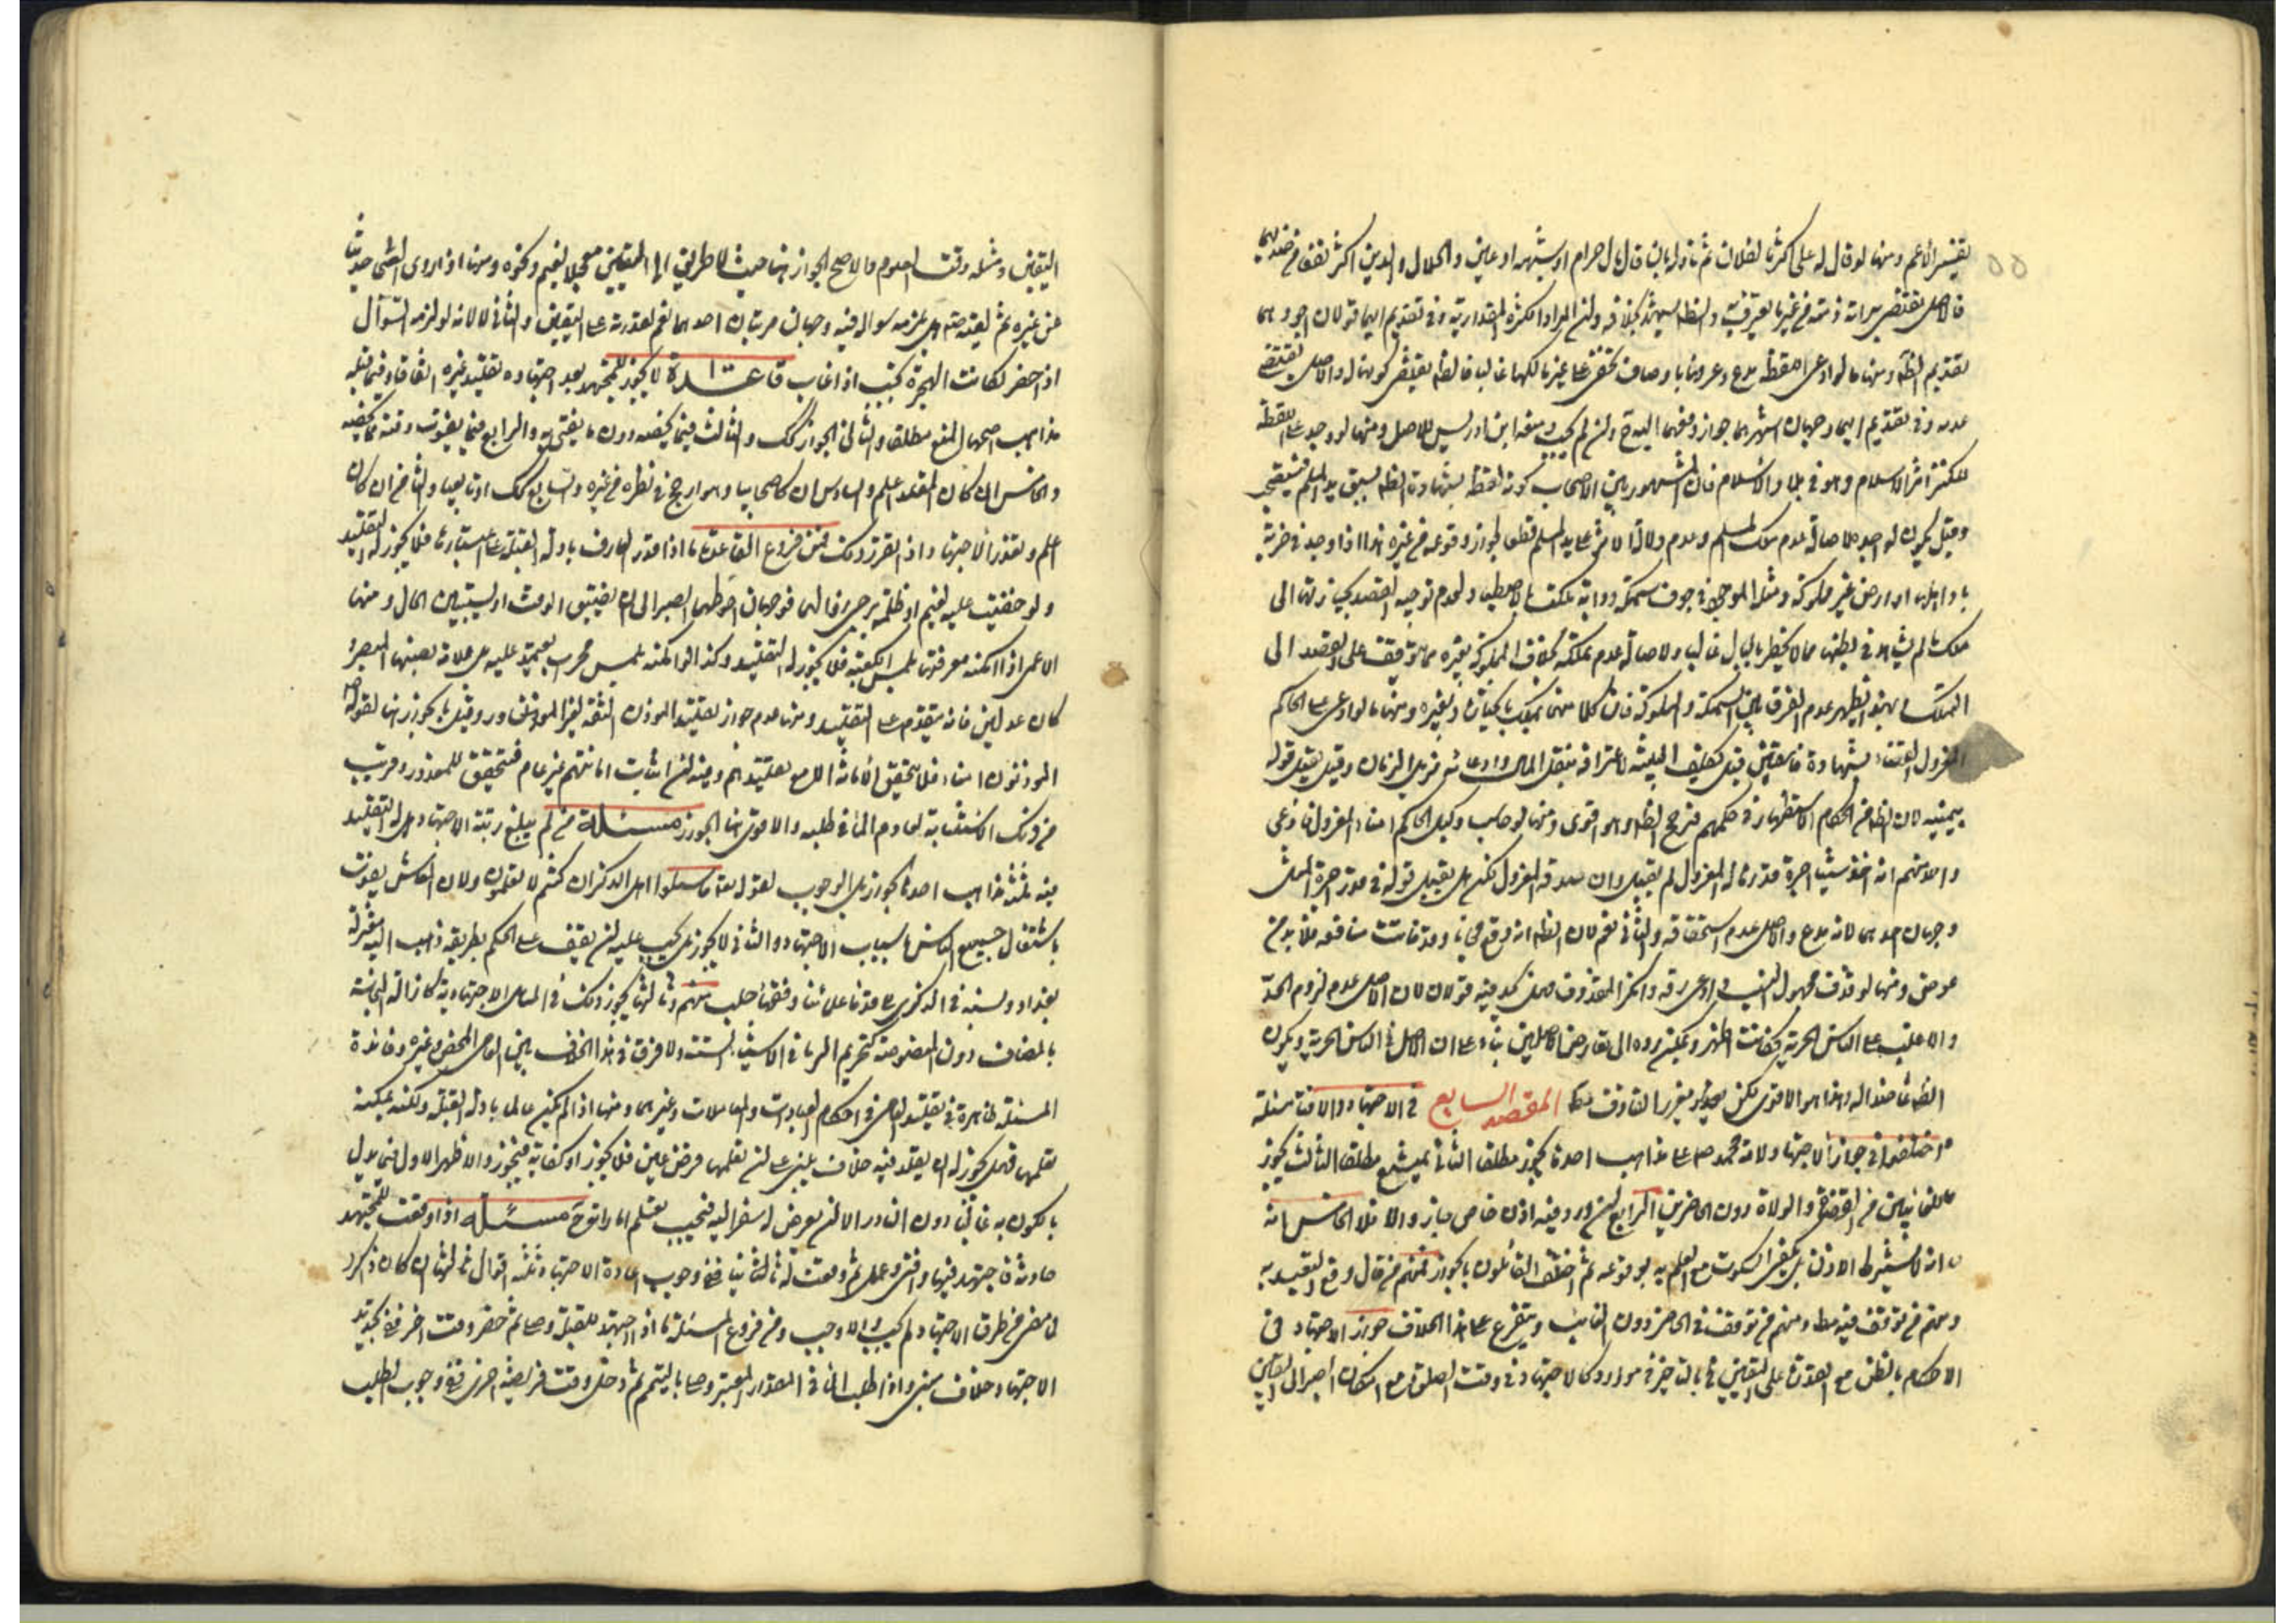 ومنها لو قال له علي اكثر مما لفلان ثم تاوله بان قال مال حرام او شبهه او عين والحلال والدين اكثر
فالاصل يقتضي براءة ذمته من غير ما يعترف به والظاهر يشهد بخلافه وان المراد الكثرة المقدارية وفي تقديم ايهما قولان اجودهما
تقديم الظاهر ومنها ما لو ادعى اللقطة مدع وعرفها باوصاف تخفى على غير مالكها غالبا فالظاهر يقتضي كونها له والاصل يقتضي
عدمه وفي تقديم ايهما وجهان اشهرهما جواز دفعها اليه ح وان لم يجب ومنعه ابن ادريس للاصل ومنها لو وجد على اللقطة
للكنز اثر الاسلام وهو في بلاد الاسلام فان المشهور بين الاصحاب كونه لقطة بشهادة الظاهر بسبق يد المسلم
وقيل يكون لواجده لاصالة عدم ملك المسلم وعدم دلالة الاثر على يد المسلم قطعا لجواز وقوعه من غيره هذا اذا وجد في خربة
باد اهلها او ارض غير مملوكة ومثله الموجود في جوف سمكة ودابة ملكت بالاصطياد لعدم توجيه القصد بحيازتها الى
ملك ما لم يشاهد في بطنها مما لا يخطر ببال غالبا ولاصالة عدم تملكه بخلاف المملوكة بغيره مما يتوقف على القصد الى
التملك وبهذا يظهر عدم الفرق بين السمكة والمملوكة فان كلا منهما يملك بالحيازة وبغيره ومنها ما لو ادعى على الحاكم
المعزول القضاء بشهادة فاسقين قيل يكلف البينة لاعترافه بنقل المال وادعائه مزيل الضمان وقيل يقبل قوله
بيمينه لان الظاهر من الحكام الاستظهار في حكمهم فيرجح الظاهر وهو اقوى ومنها لو حاسب وكيل الحاكم امناء المعزول فادعى
واحد منهم انه اخذ شيئا اجرة قدرها له المعزول لم يقبل وان صدقه المعزول لكن هل يقبل قوله في قدر اجرة المثل
وجهان احدهما لا لانه مدع والاصل عدم استحقاقه والثاني نعم لان الظاهر انه لم يقع مجانا وقد فاتت منافعه فلا بد من
عوض ومنها لو قذف مجهول النسب وادعى رقه وانكر المقذوف فهل يحد فيه قولان لان الاصل عدم لزوم الحد
والاغلب على الناس الحرية فكانت اظهر ويمكن رده الى تعارض الاصلين بناء على ان الاصل في الناس الحرية ويكون
الظاهر عاضدا له وهذا هو الاقوى لكن يعزر القاذف المقصد السابع في الاجتهاد والافتاء مسئلة
اختلفوا في جواز الاجتهاد لامة محمد ص على مذاهب احدها يجوز مطلقا الثاني يمتنع مطلقا الثالث يجوز
للغائبين من القضاة والولاة دون الحاضرين الرابع ان ورد فيه اذن خاص جاز والا فلا الخامس انه
لا يشترط الاذن بل يكفي السكوت مع العلم به بوقوعه ثم اختلف القائلون بالجواز فمنهم من قال وقع التعبد به
ومنهم من توقف فيه مطلقا ومنهم من توقف في الحاضر دون الغائب ويتفرع على هذا الخلاف جواز الاجتهاد في
الاحكام بالظن مع القدرة على اليقين كالاجتهاد في وقت الصلوة مع امكان الصبر الى اليقين
اليقين ومثله وقت الصوم والاصح الجواز هنا حيث لا طريق الى اليقين معجلا لغيم ونحوه ومنها اذا روى الشخص حديثا
عن غيره ثم لقيه فهل يلزمه سواله فيه وجهان مرتبان احدهما نعم لقدرته على اليقين والثاني لا لانه لو لزمه السؤال
اذا حضر لكانت الهجرة تجب اذا غاب قاعدة لا يجوز للمجتهد بعد اجتهاده تقليد غيره اتفاقا وفيما قبله
مذاهب اصحها المنع مطلقا والثاني الجواز كك والثالث فيما يخصه دون ما يفتي به والرابع فيما يفوت وقته مما يخصه
والخامس ان كان المقلد اعلم والسادس ان كان صحابيا وهو ارجح في نظره من غيره والسابع كك او تابعيا والثامن ان كان
اعلم وتعذر الاجتهاد اذا تقرر ذلك فمن فروع القاعدة ما اذا قدر العارف بادلة القبلة على استبانتها فلا يجوز له التقليد
ولو خفيت عليه لغيم او ظلمة يرجى زوالهما فوجهان احوطهما الصبر الى ان يضيق الوقت او يستبين الحال ومنها
الاعمى اذا امكنه معرفتها بلمس الكعبة فلا يجوز له التقليد وكذا لو امكنه بلمس محراب يعتمد عليه بل علامة نصبها البصير
كان عدلين فانه يقدم على التقليد ومنها عدم جواز تقليد الموذن الثقة لغير الموثق ورد وقيل بالجواز هنا لقوله ص
الموذنون امناء فلا تتحقق الامانة الا مع تقليدهم وفيه ان اثبات امانتهم غير عام فتتحقق للمعذور وقريب
من ذلك الاستنابة لعادم الماء في طلبه والاقوى هنا الجواز مسئلة من لم يبلغ رتبة الاجتهاد هل له التقليد
فيه ثلثة مذاهب احدها يجوز بل الوجوب لقوله تعالى فاسئلوا اهل الذكر ان كنتم لا تعلمون ولان المعاش يفوت
باشتغال جميع الناس باسباب الاجتهاد والثاني لا يجوز بل يجب عليه ان يقف على الحكم بطريقه ذهب اليه معتزلة
بغداد ونسبه في الذكرى الى قدماء علمائنا وفقهاء حلب منهم وثالثها يجوز ذلك في المسائل الاجتهادية كازالة النجاسة
بالمضاف دون المنصوصة كتحريم الربا في الاشياء الستة ولا فرق في هذا الخلاف بين العامي المحض وغيره وفائدة
المسئلة ظاهرة في تقليد العامي في احكام العبادات والمعاملات وغيرهما ومنها اذا لم يكن عالما بادلة القبلة ولكنه يمكنه
تعلمها فهل يجوز له ان يقلد فيه خلاف يبنى على ان تعلمها فرض عين فلا يجوز او كفاية فيجوز والاظهر الاول فيما يدل
بالكون به غالبا دون النادر الا لمن يعرض له سفر اليه فيجب تعلم اماراته ح مسئلة اذا وقعت للمجتهد
حادثة فاجتهد فيها وافتى وعمل ثم وقعت له ثانيا ففي وجوب اعادة الاجتهاد ثلثة اقوال ثالثها ان كان ذاكرا
لما مضى من طرق الاجتهاد لم يجب والا وجب ومن فروع المسئلة ما اذا اجتهد للقبلة وصلى ثم حضر وقت اخر ففي تجديد
الاجتهاد خلاف مبني واذا طلب الماء في المقدار المعتبر وصلى بالتيمم ثم دخل وقت فريضة اخرى ففي وجوب الطلب